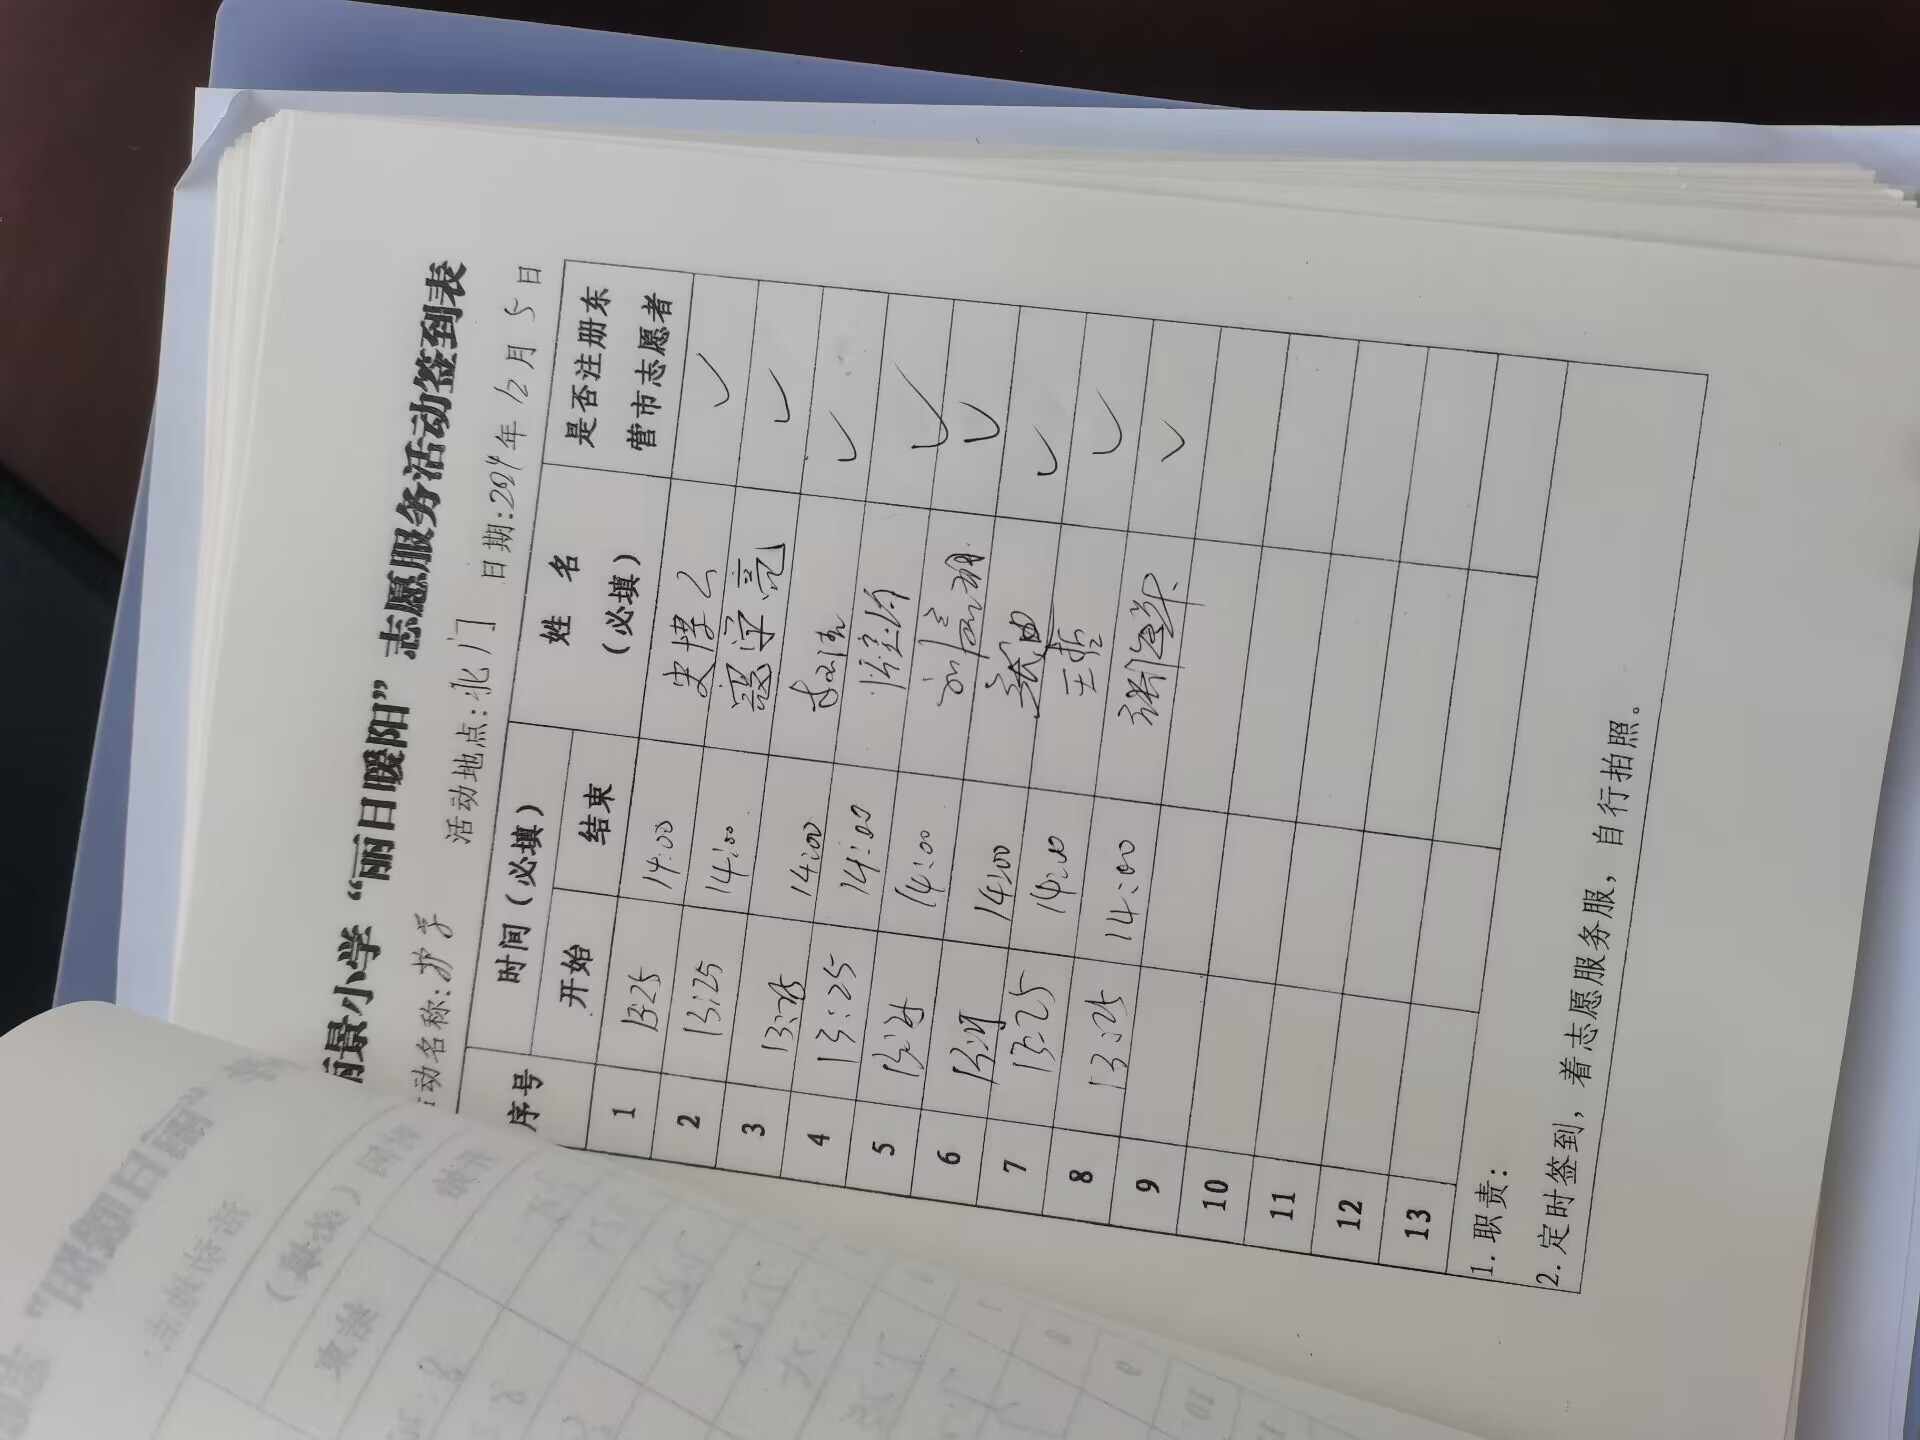 丽景小学“丽日暖阳”志愿服务活动签到表
活动名称:护学 活动地点:北门 日期:2024年12月5日
序号 时间(必填) 姓 名 (必填) 是否注册东营市志愿者
开始 结束
1 13:25 14:00 ✓
2 13:25 14:00 寇守亮 ✓
3 13:25 14:00 ✓
4 13:25 14:00 ✓
5 13:25 14:00 ✓
6 13:25 14:00 ✓
7 13:25 14:00 王哲 ✓
8 13:25 14:00 ✓
9
10
11
12
13
1.职责:
2.定时签到，着志愿服务服，自行拍照。